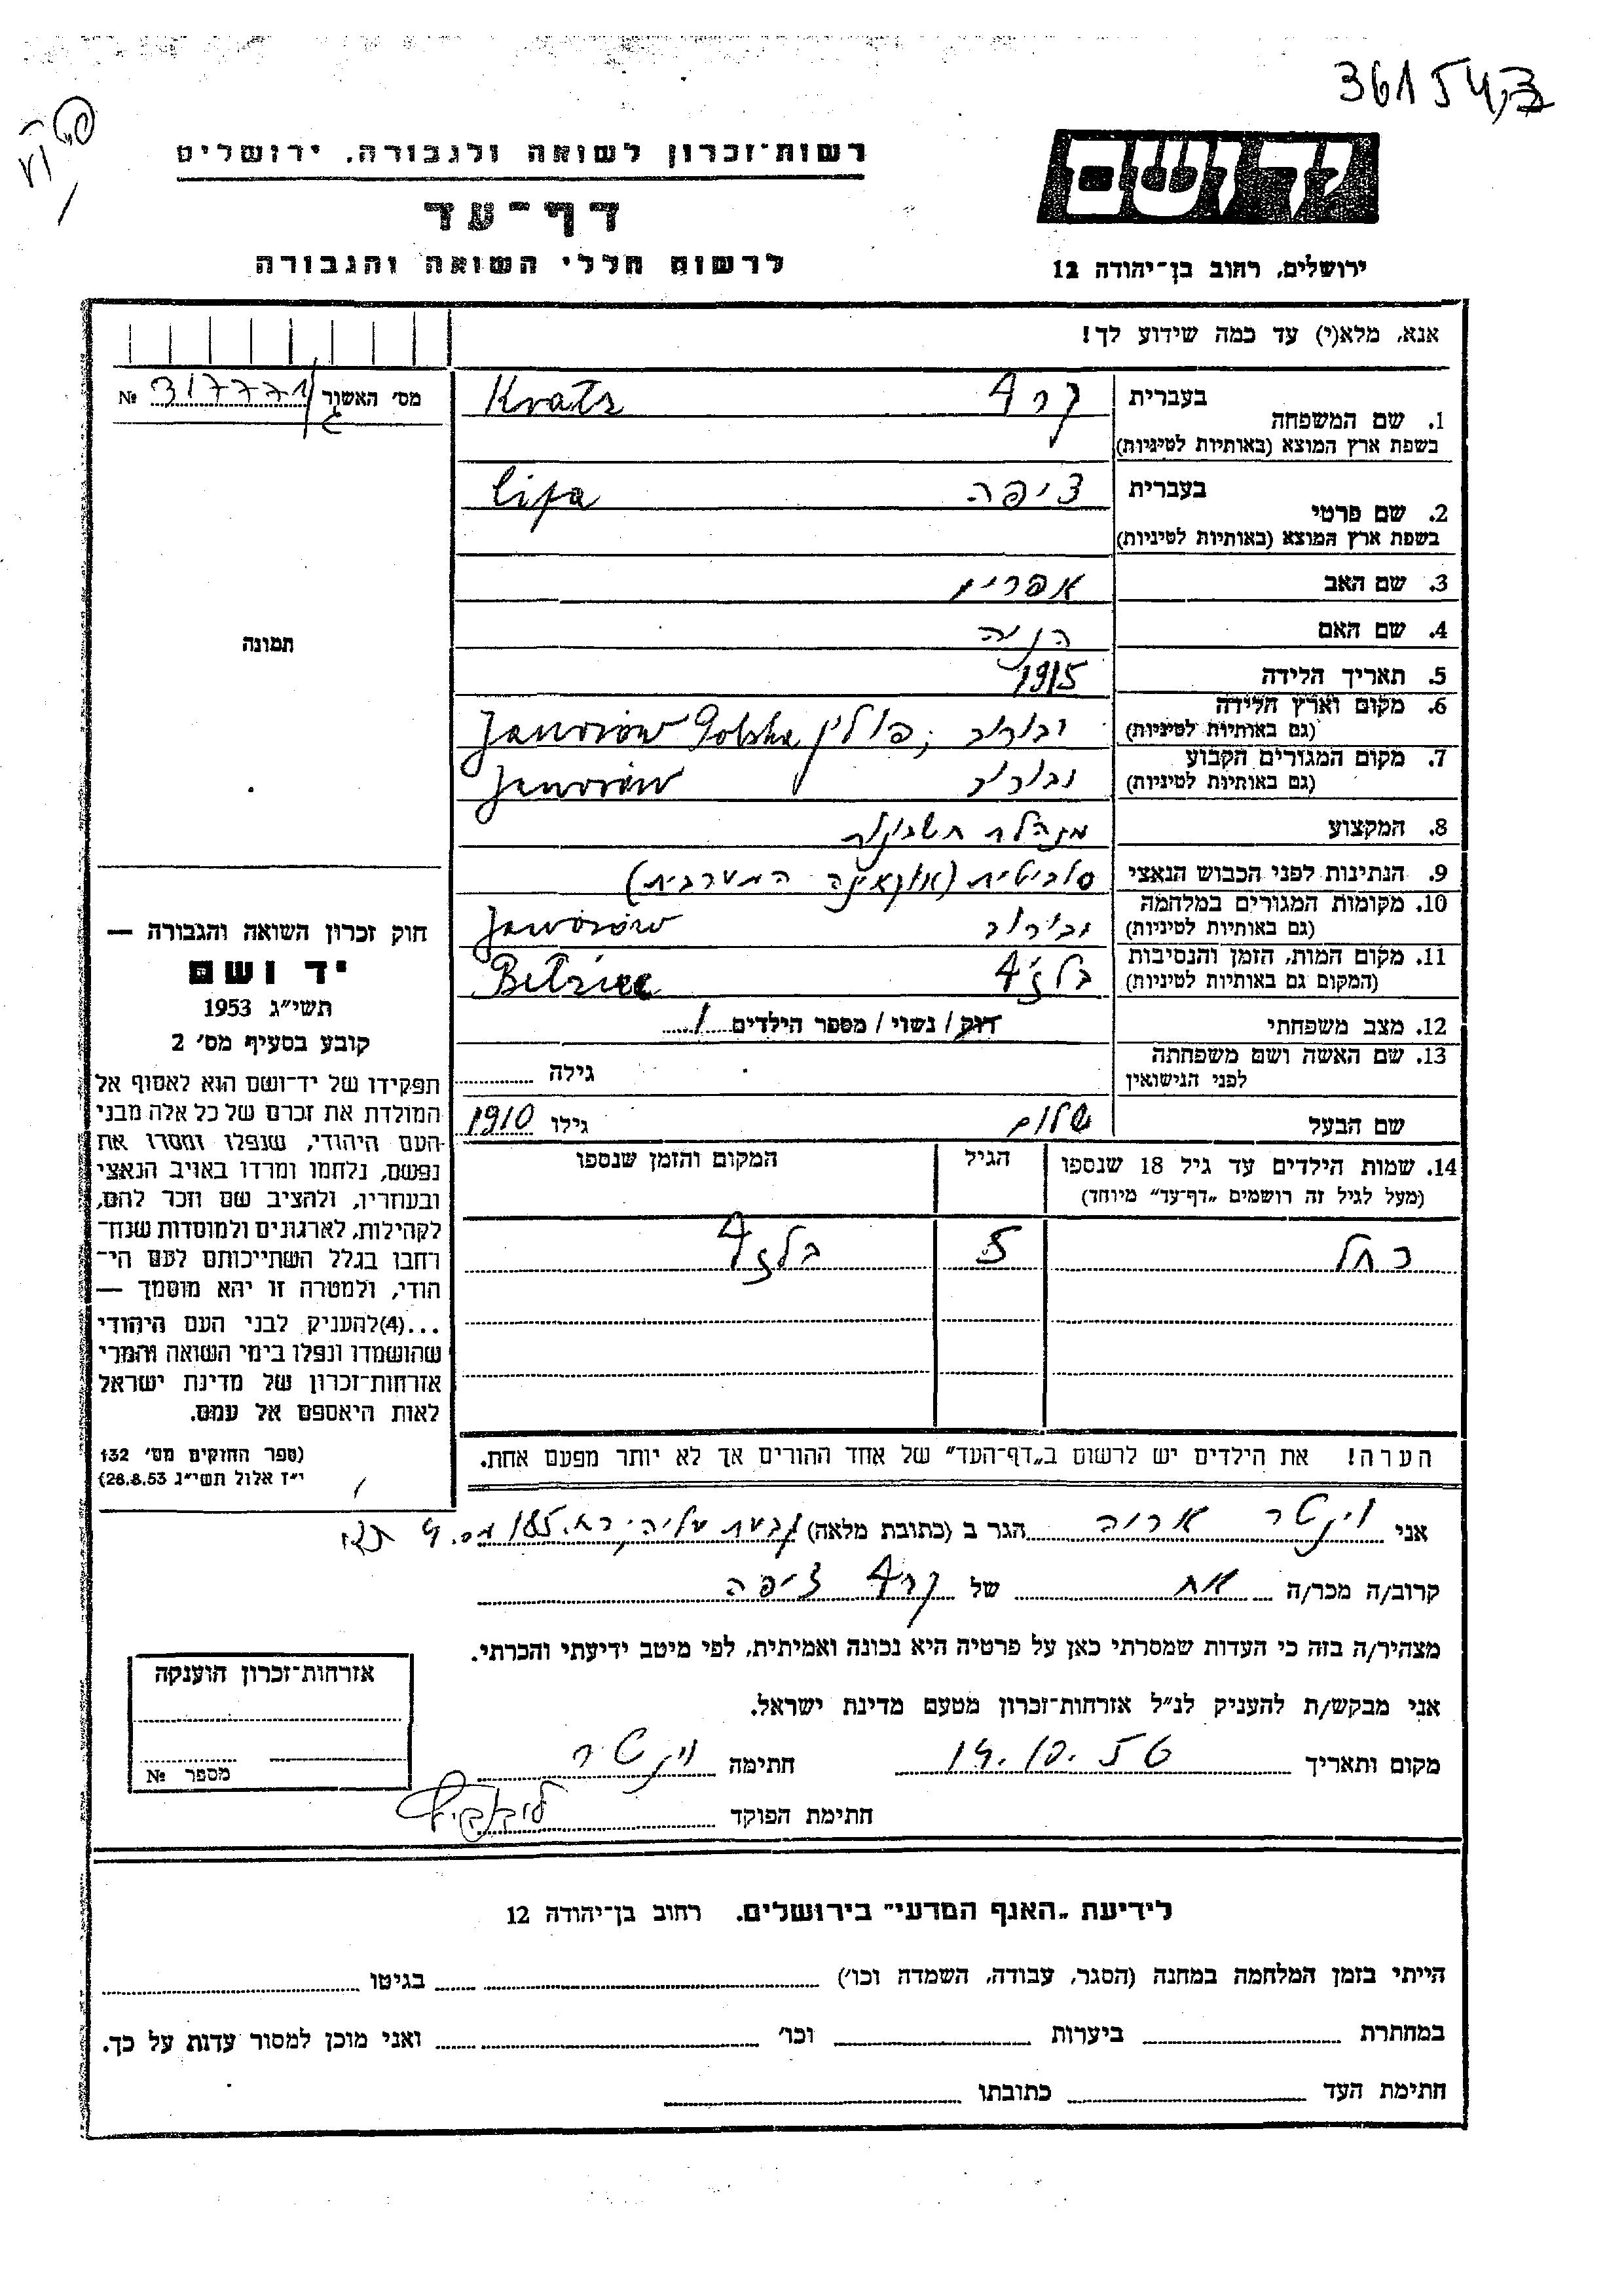 361543
רשות־זכרון לשואה ולגבורה, ירושלים
יד ושם
דף־עד
לרשום חללי השואה והגבורה
ירושלים, רחוב בן־יהודה 12
אנא, מלא(י) עד כמה שידוע לך!
מס׳ האשור 317771 №
1. שם המשפחה
בעברית קרץ Kratz
בשפת ארץ המוצא (באותיות לטיניות)
2. שם פרטי
בעברית ציפה Cipa
בשפת ארץ המוצא (באותיות לטיניות)
3. שם האב אפרים
4. שם האם
5. תאריך הלידה 1915
6. מקום וארץ הלידה יבורוב, פולין Jaworów Polska
(גם באותיות לטיניות)
7. מקום המגורים הקבוע יבורוב Jaworów
(גם באותיות לטיניות)
8. המקצוע מנהלת חשבונות
9. הנתינות לפני הכבוש הנאצי סוביטית (אוקראינה המערבית)
10. מקומות המגורים במלחמה יבורוב Jaworów
(גם באותיות לטיניות)
11. מקום המות, הזמן והנסיבות בלז'ץ Bełżec
(המקום גם באותיות לטיניות)
12. מצב משפחתי רוק / נשוי / מספר הילדים 1
13. שם האשה ושם משפחתה
לפני הנישואין גילה
שם הבעל שלום גילו 1910
14. שמות הילדים עד גיל 18 שנספו
(מעל לגיל זה רושמים „דף־עד״ מיוחד)
הגיל
המקום והזמן שנספו
רחל 5 בלזץ
תמונה
חוק זכרון השואה והגבורה —
יד ושם
תשי״ג 1953
קובע בסעיף מס׳ 2
תפקידו של יד־ושם הוא לאסוף אל
המולדת את זכרם של כל אלה מבני
העם היהודי, שנפלו ומסרו את
נפשם, נלחמו ומרדו באויב הנאצי
ובעוזריו, ולהציב שם וזכר להם,
לקהילות, לארגונים ולמוסדות שנח־
רחבו בגלל השתייכותם לעם הי־
הודי, ולמטרה זו יהא מוסמך —
...(4)להעניק לבני העם היהודי
שהושמדו ונפלו בימי השואה והמרי
אזרחות־זכרון של מדינת ישראל
לאות היאספם אל עמם.
(ספר החוקים מס׳ 132
י״ז אלול תשי״ג 28.8.53)
הערה! את הילדים יש לרשום ב„דף־העד״ של אחד ההורים אך לא יותר מפעם אחת.
אני ויקטר אריה הגר ב (כתובת מלאה) גבעת עליה, רח. 185
קרוב/ה מכר/ה אח של קרץ ציפה
מצהיר/ה בזה כי העדות שמסרתי כאן על פרטיה היא נכונה ואמיתית, לפי מיטב ידיעתי והכרתי.
אני מבקש/ת להעניק לנ״ל אזרחות־זכרון מטעם מדינת ישראל.
מקום ותאריך 14.10.56 חתימה ויקטר
חתימת הפוקד
אזרחות־זכרון הוענקה
מספר №
לידיעת „האגף המדעי״ בירושלים. רחוב בן־יהודה 12
הייתי בזמן המלחמה במחנה (הסגר, עבודה, השמדה וכו׳) בגיטו
במחתרת ביערות וכו׳ ואני מוכן למסור עדות על כך.
חתימת העד כתובתו